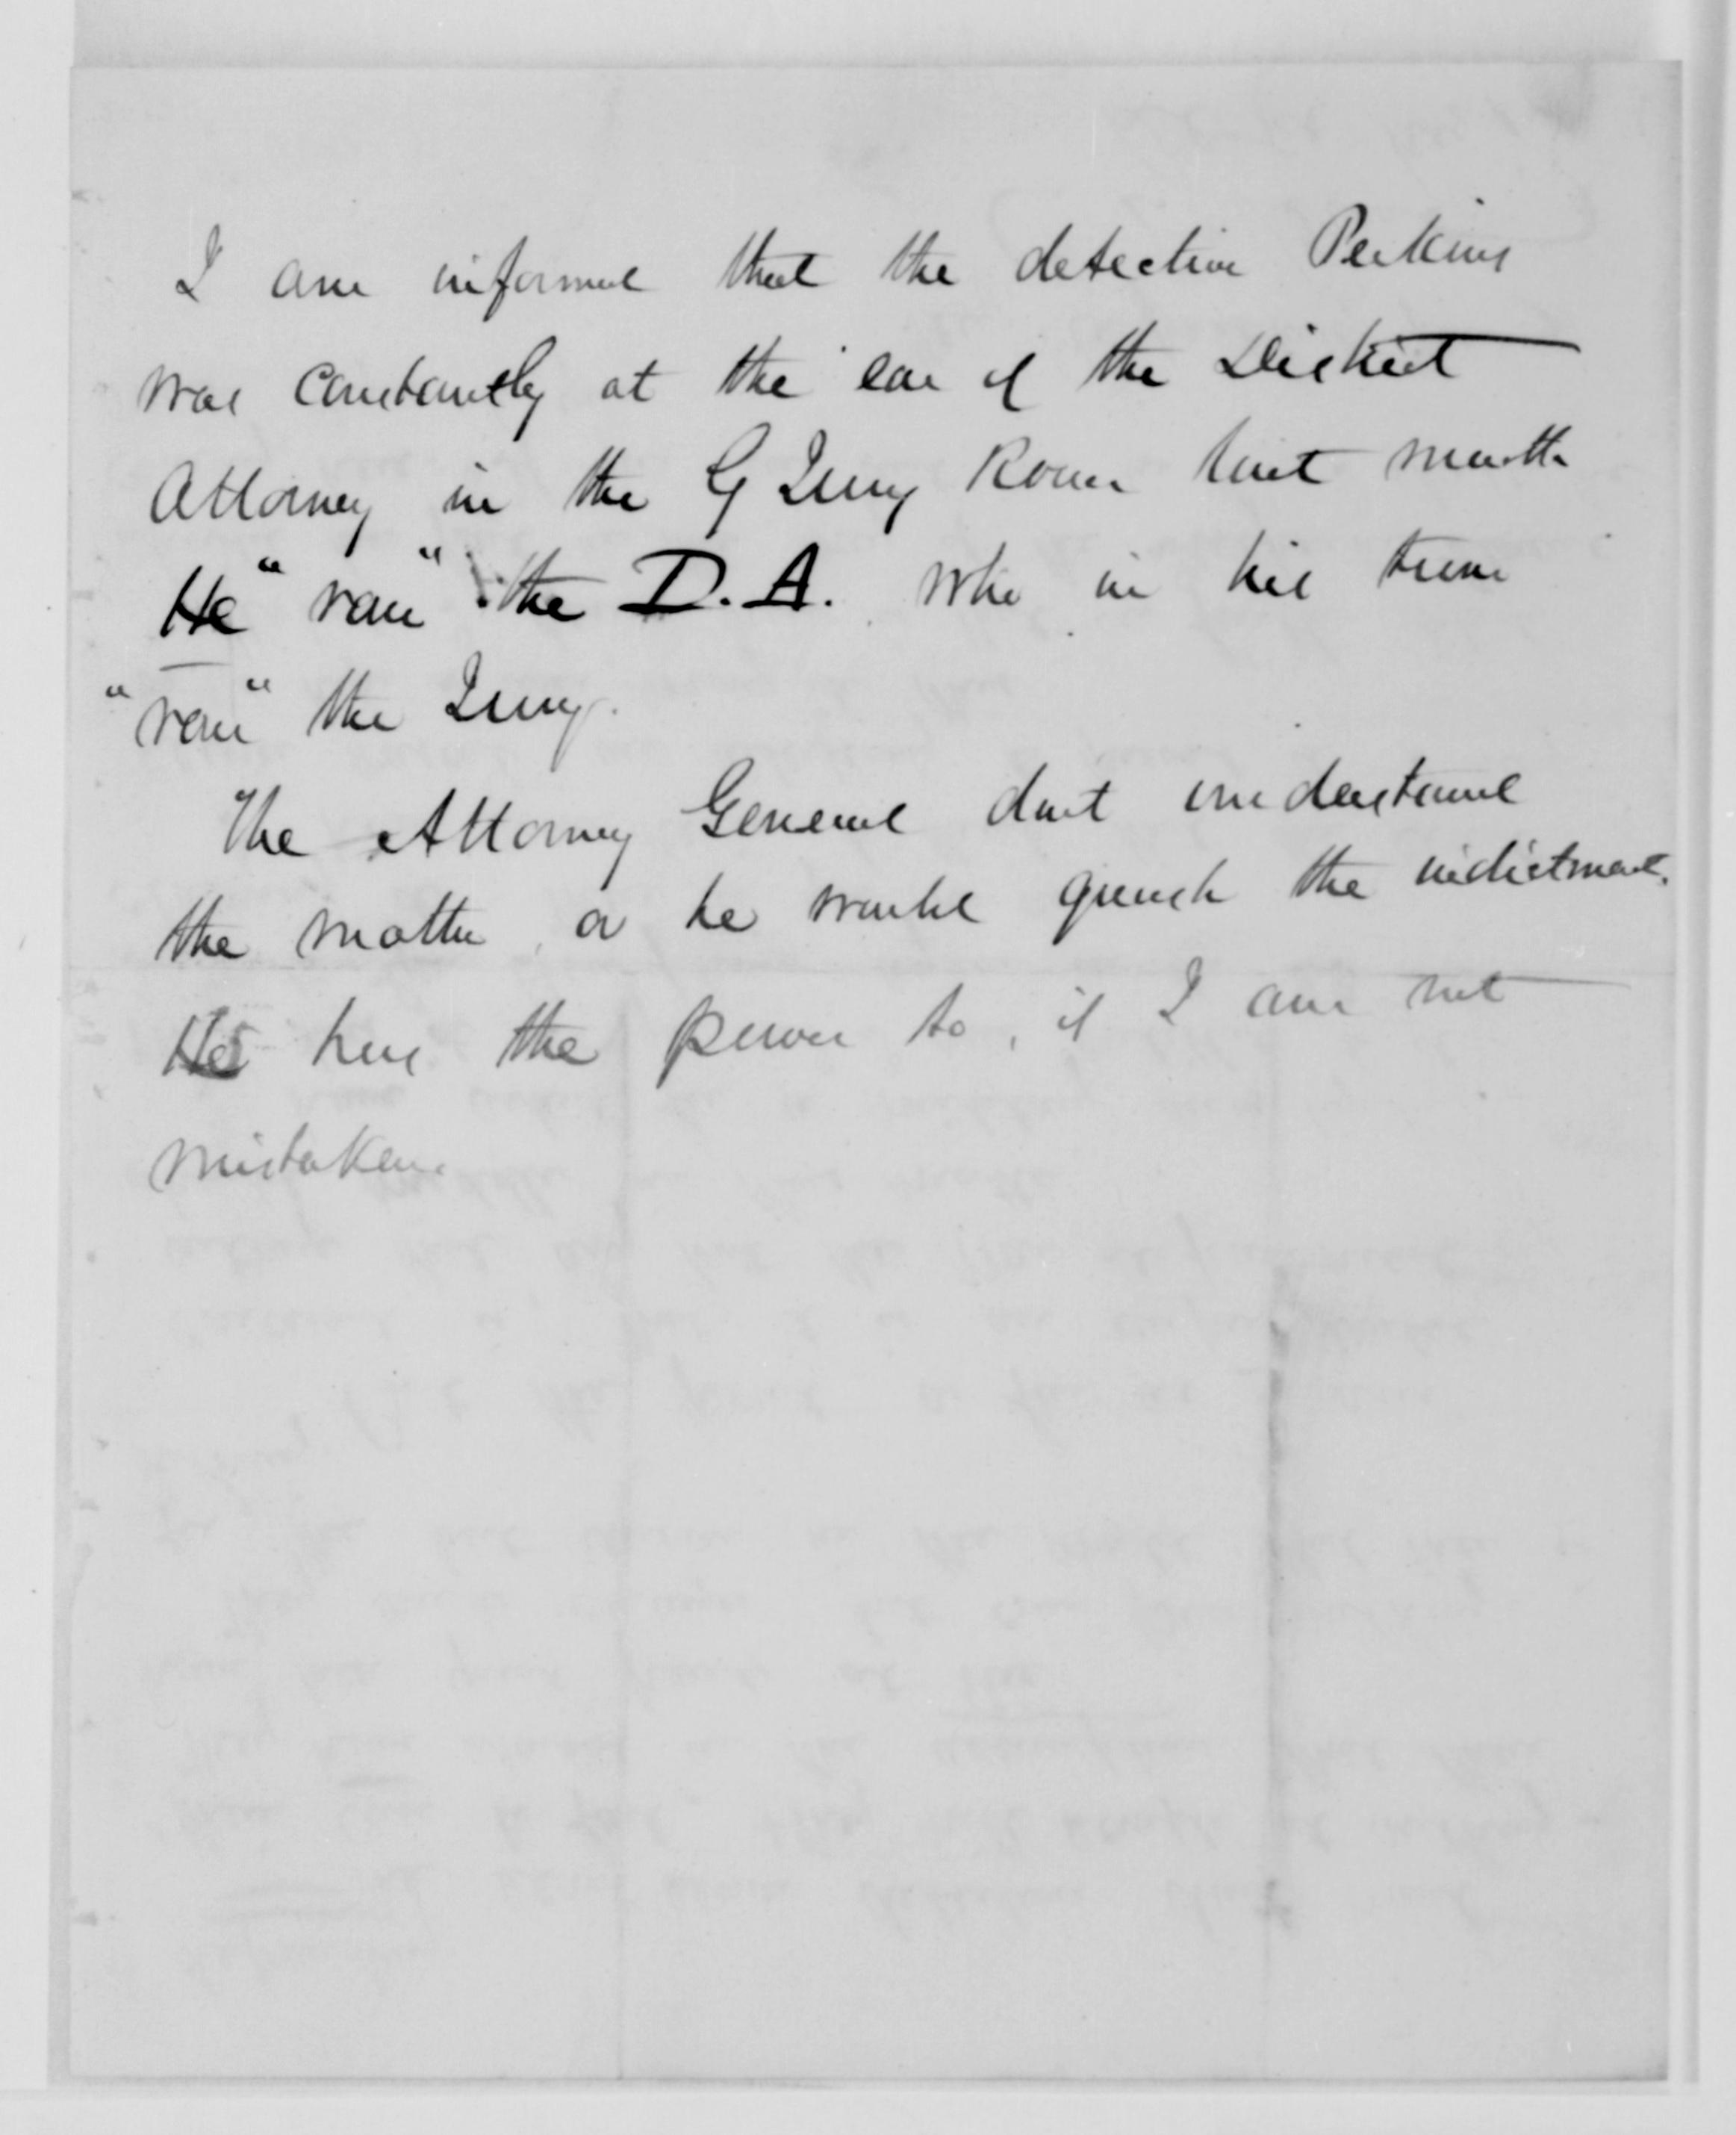 I am informed that the detective Perkins
was constantly at the ear of the District
Attorney in the G Jury Room last month
He "ran" the D.A. who in his turn
"ran" the Jury.
The Attorney General dont understand
the matter, or he would quash the indictment.
He has the power to, if I am not
mistaken.